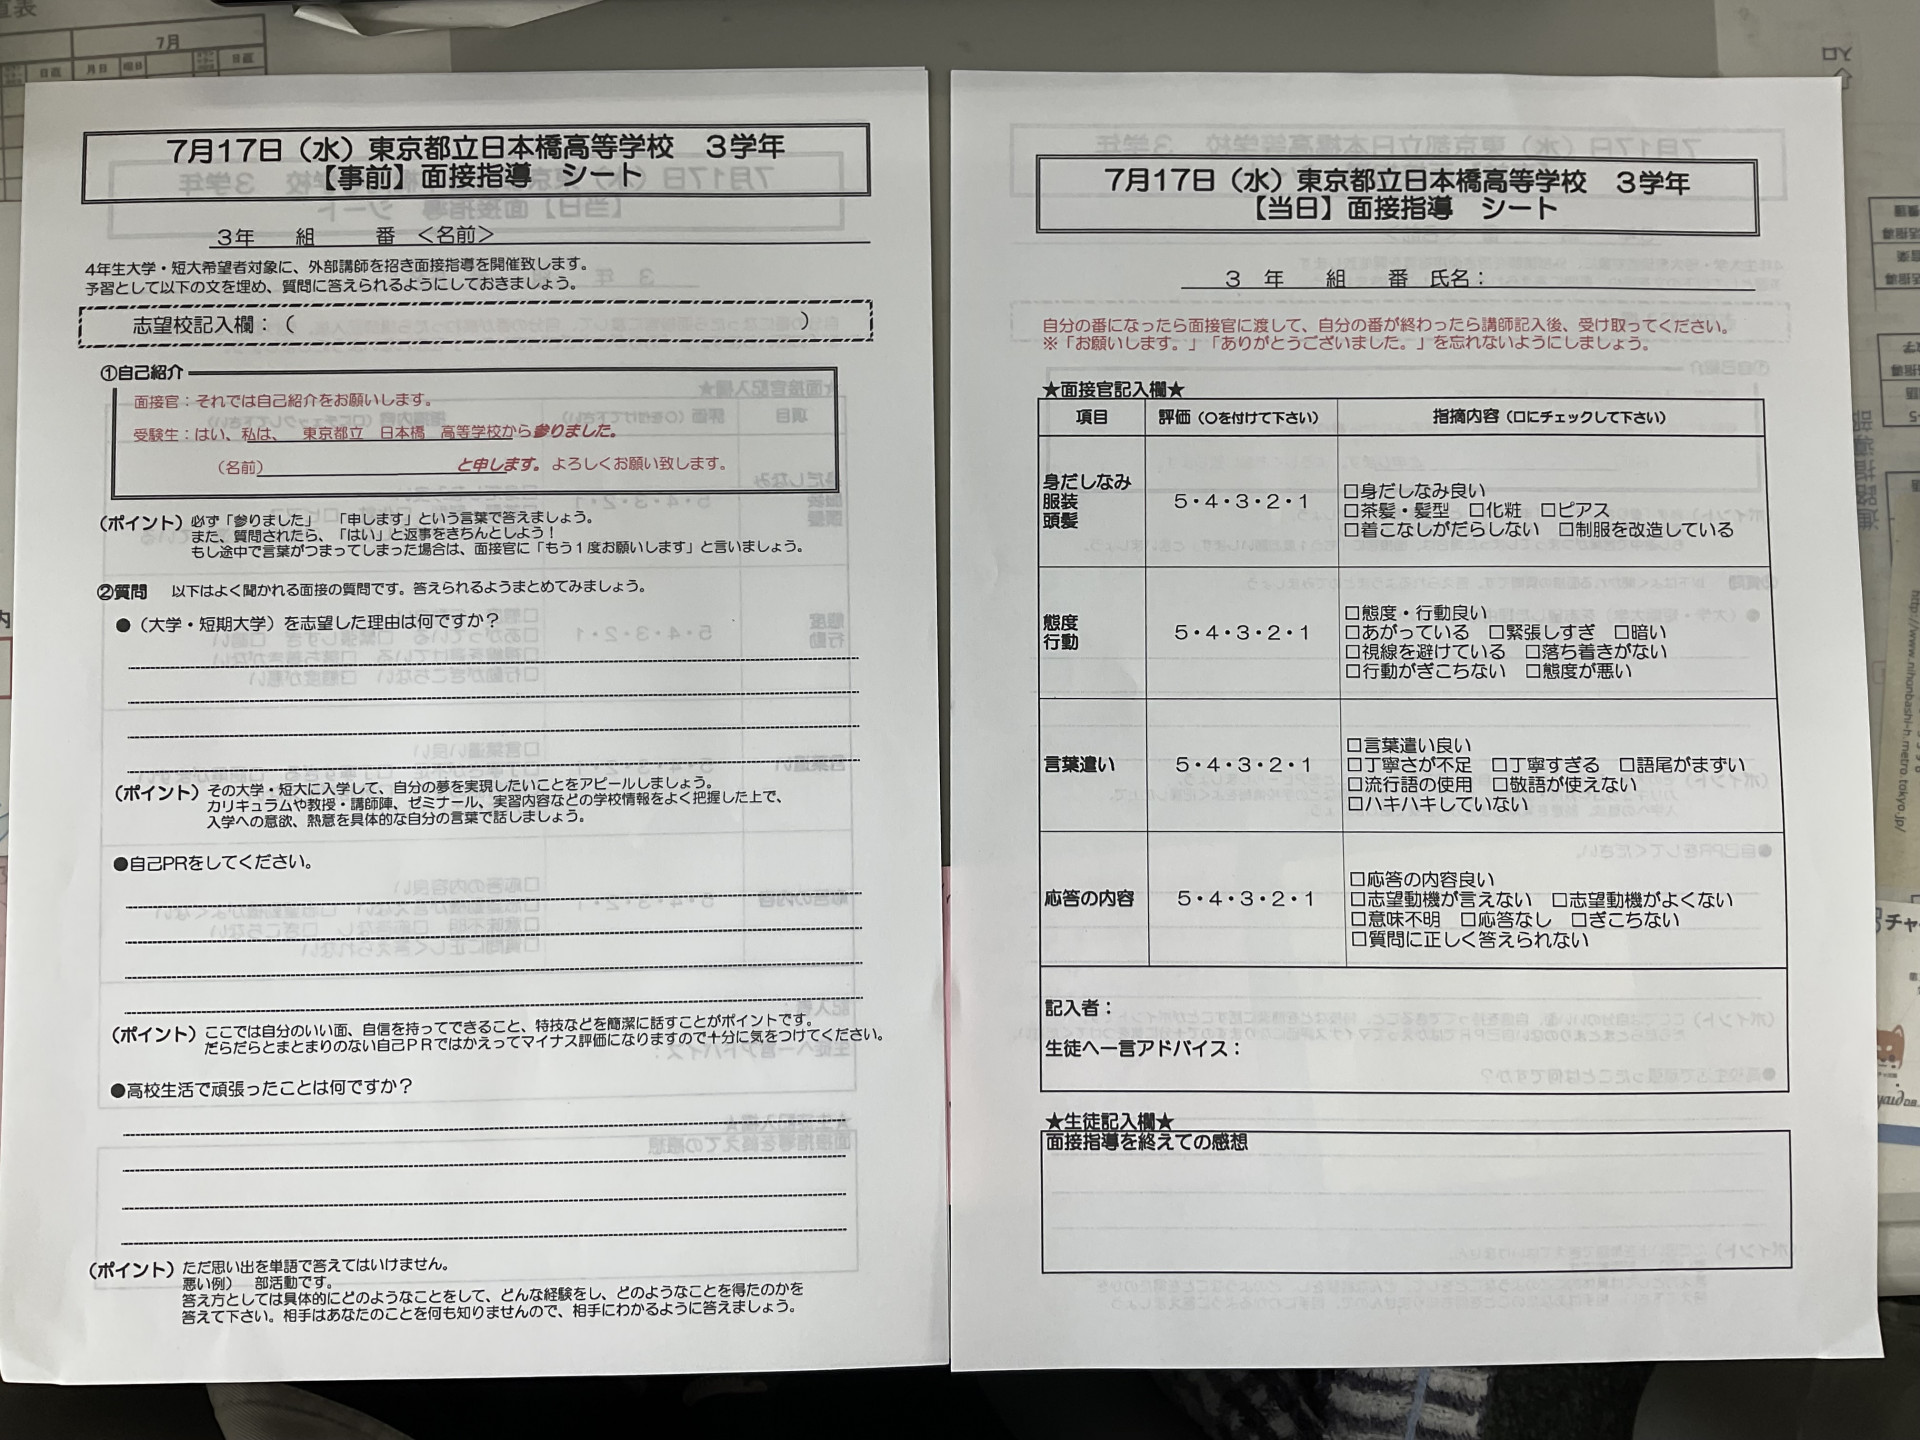 7月
日直
月日
曜日
日直
7月17日（水）東京都立日本橋高等学校　３学年
【事前】面接指導　シート
３年　　組　　　番　＜名前＞
4年生大学・短大希望者対象に、外部講師を招き面接指導を開催致します。
予習として以下の文を埋め、質問に答えられるようにしておきましょう。
志望校記入欄：（　　　　　　　　　　）
①自己紹介
面接官：それでは自己紹介をお願いします。
受験生：はい、私は、　東京都立　日本橋　高等学校から参りました。
（名前）　　　　　　　　　と申します。よろしくお願い致します。
（ポイント）必ず「参りました」　「申します」という言葉で答えましょう。
また、質問されたら、「はい」と返事をきちんとしよう！
もし途中で言葉がつまってしまった場合は、面接官に「もう１度お願いします」と言いましょう。
②質問　以下はよく聞かれる面接の質問です。答えられるようまとめてみましょう。
●（大学・短期大学）を志望した理由は何ですか？
（ポイント）その大学・短大に入学して、自分の夢を実現したいことをアピールしましょう。
カリキュラムや教授・講師陣、ゼミナール、実習内容などの学校情報をよく把握した上で、
入学への意欲、熱意を具体的な自分の言葉で話しましょう。
●自己PRをしてください。
（ポイント）ここでは自分のいい面、自信を持ってできること、特技などを簡潔に話すことがポイントです。
だらだらとまとまりのない自己ＰＲではかえってマイナス評価になりますので十分に気をつけてください。
●高校生活で頑張ったことは何ですか？
（ポイント）ただ思い出を単語で答えてはいけません。
悪い例）　部活動です。
答え方としては具体的にどのようなことをして、どんな経験をし、どのようなことを得たのかを
答えて下さい。相手はあなたのことを何も知りませんので、相手にわかるように答えましょう。
7月17日（水）東京都立日本橋高等学校　３学年
【当日】面接指導　シート
３　年　　組　　番　氏名：
自分の番になったら面接官に渡して、自分の番が終わったら講師記入後、受け取ってください。
※「お願いします。」「ありがとうございました。」を忘れないようにしましょう。
★面接官記入欄★
項目　評価（○を付けて下さい）　指摘内容（□にチェックして下さい）
身だしなみ
服装
頭髪
5・4・3・2・1
□身だしなみ良い
□茶髪・髪型　□化粧　□ピアス
□着こなしがだらしない　□制服を改造している
態度
行動
5・4・3・2・1
□態度・行動良い
□あがっている　□緊張しすぎ　□暗い
□視線を避けている　□落ち着きがない
□行動がぎこちない　□態度が悪い
言葉遣い
5・4・3・2・1
□言葉遣い良い
□丁寧さが不足　□丁寧すぎる　□語尾がまずい
□流行語の使用　□敬語が使えない
□ハキハキしていない
応答の内容
5・4・3・2・1
□応答の内容良い
□志望動機が言えない　□志望動機がよくない
□意味不明　□応答なし　□ぎこちない
□質問に正しく答えられない
記入者：
生徒へ一言アドバイス：
★生徒記入欄★
面接指導を終えての感想
http://www.nihonbashi-h.metro.tokyo.jp/